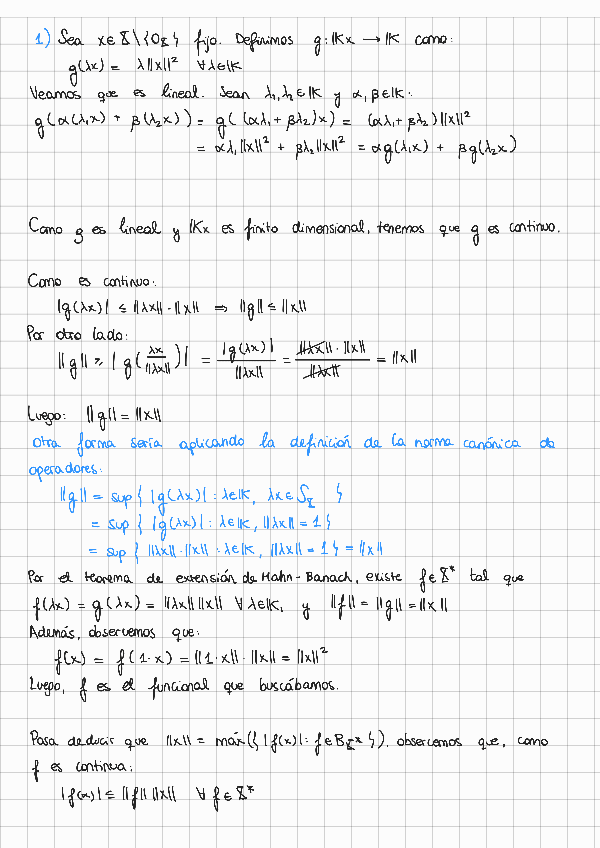 1) Sea x ∈ X\{0_X} fijo. Definimos g: 𝕂x → 𝕂 como:
g(λx) = λ‖x‖² ∀λ∈𝕂
Veamos que es lineal. Sean λ₁, λ₂ ∈ 𝕂 y α, β ∈ 𝕂.
g(α(λ₁x) + β(λ₂x)) = g((αλ₁ + βλ₂)x) = (αλ₁ + βλ₂)‖x‖²
= αλ₁‖x‖² + βλ₂‖x‖² = αg(λ₁x) + βg(λ₂x)
Como g es lineal y 𝕂x es finito dimensional, tenemos que g es continuo.
Como es continuo:
|g(λx)| ≤ ‖λx‖·‖x‖ ⇒ ‖g‖ ≤ ‖x‖
Por otro lado:
‖g‖ ≥ |g(λx/‖λx‖)| = |g(λx)|/‖λx‖ = ‖λx‖·‖x‖/‖λx‖ = ‖x‖
Luego: ‖g‖ = ‖x‖
Otra forma sería aplicando la definición de la norma canónica de
operadores:
‖g‖ = sup { |g(λx)| : λ∈𝕂, λx ∈ S_X }
= sup { |g(λx)| : λ∈𝕂, ‖λx‖ = 1 }
= sup { ‖λx‖·‖x‖ : λ∈𝕂, ‖λx‖ = 1 } = ‖x‖
Por el teorema de extensión de Hahn-Banach, existe f ∈ X* tal que
f(λx) = g(λx) = ‖λx‖‖x‖ ∀λ∈𝕂, y ‖f‖ = ‖g‖ = ‖x‖
Además, observemos que:
f(x) = f(1·x) = ‖1·x‖·‖x‖ = ‖x‖²
Luego, f es el funcional que buscábamos.
Para deducir que ‖x‖ = máx({ |f(x)| : f ∈ B_X* }), observemos que, como
f es continua:
|f(x)| ≤ ‖f‖‖x‖ ∀ f ∈ X*